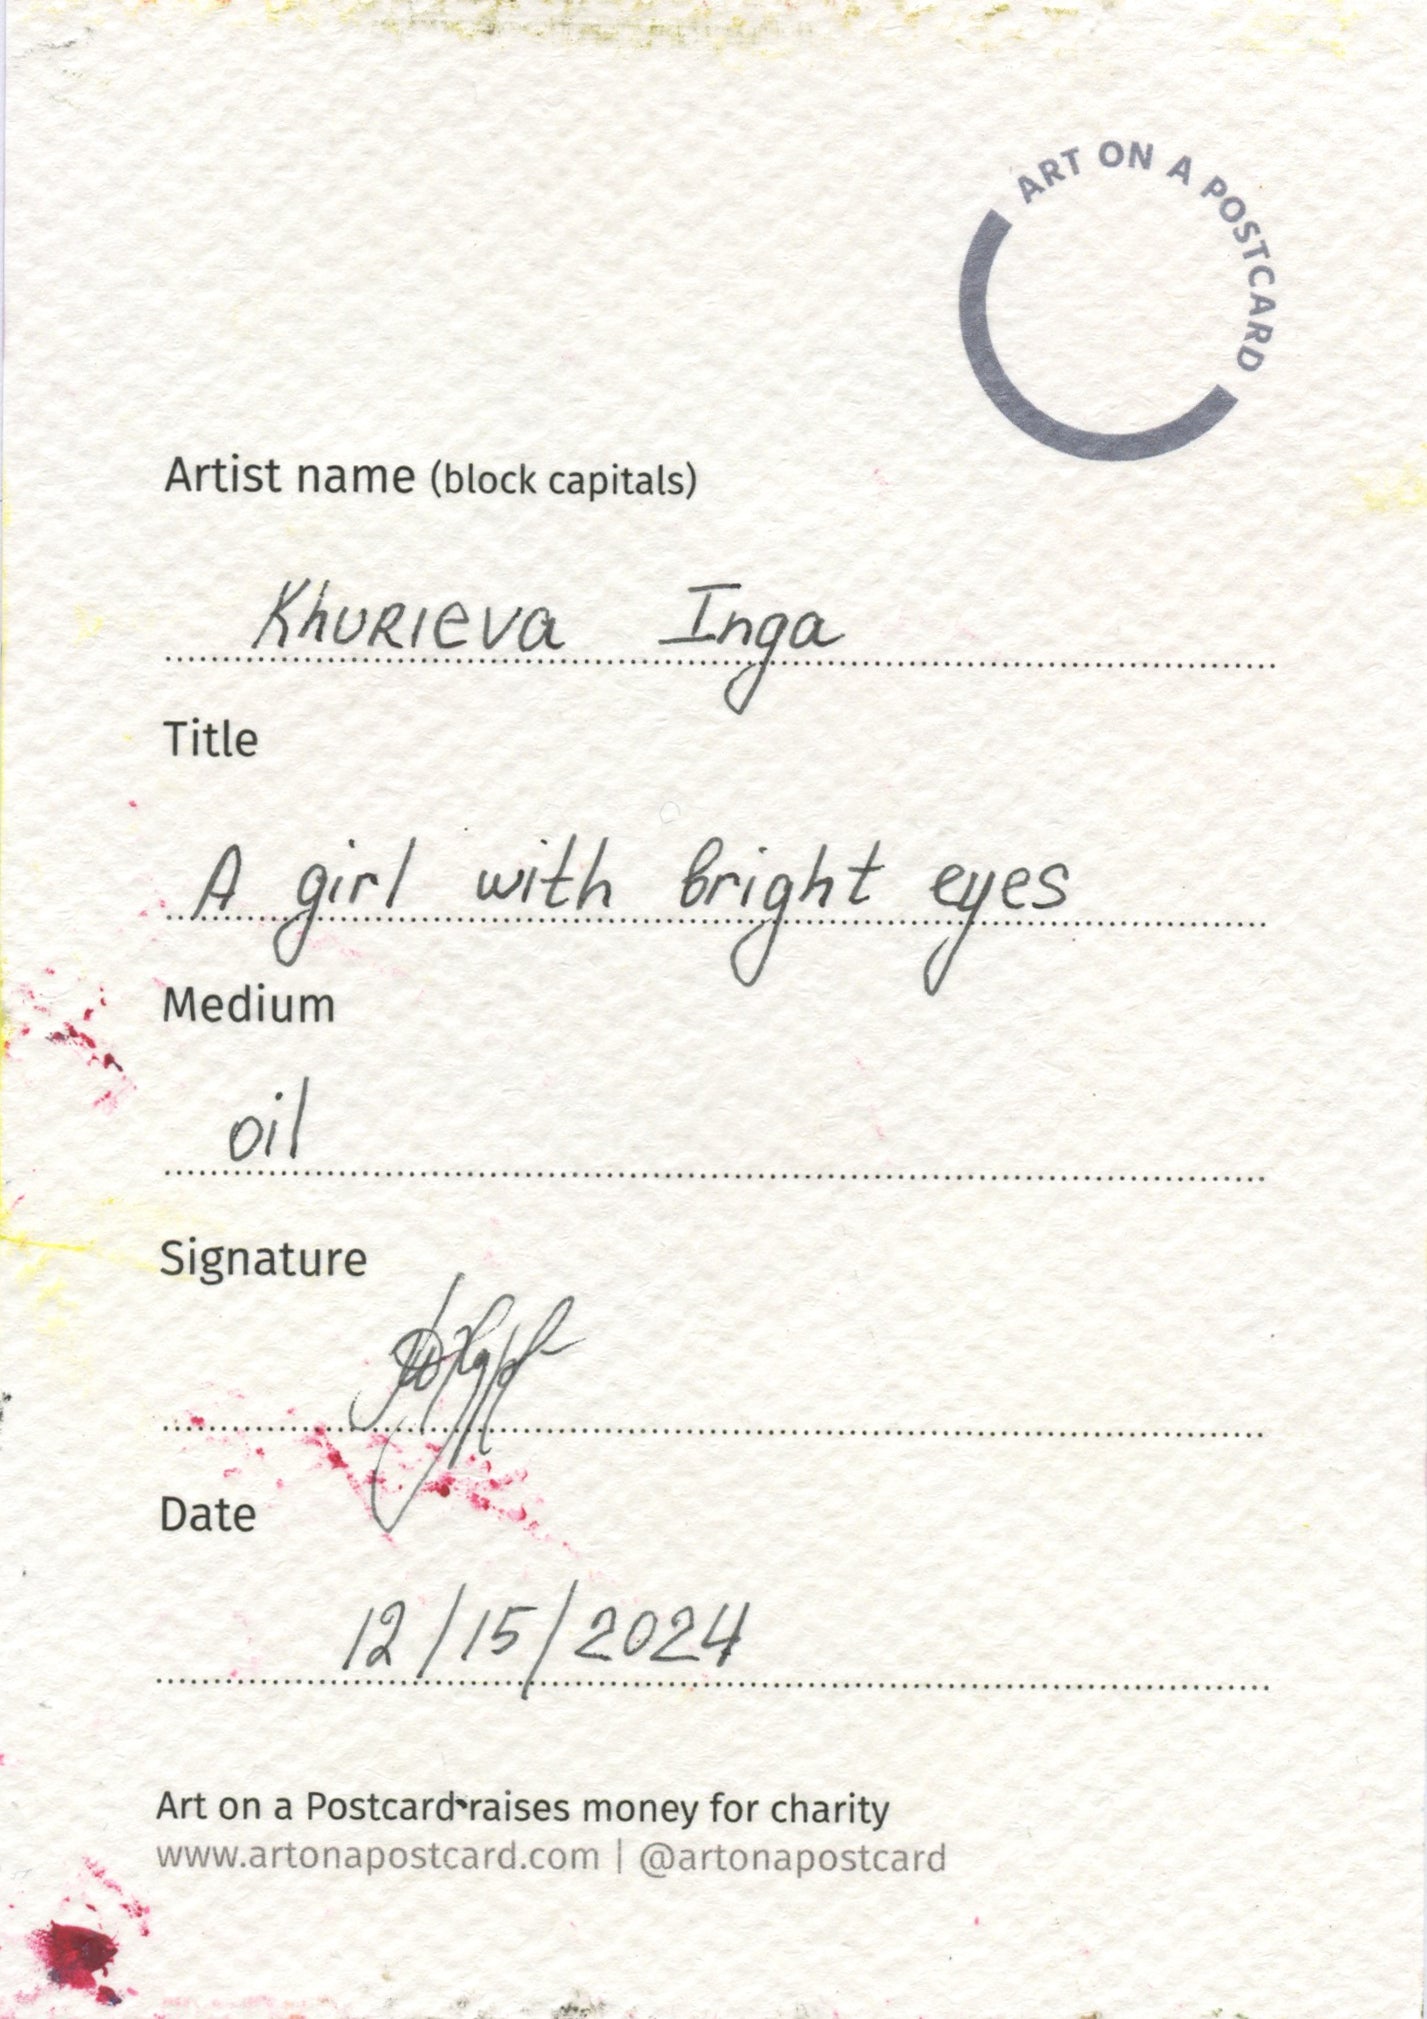 ART ON A POSTCARD
Artist name (block capitals)
KhURIEVa Inga
Title
A girl with bright eyes
Medium
oil
Signature
Date
12/15/2024
Art on a Postcard raises money for charity
www.artonapostcard.com | @artonapostcard